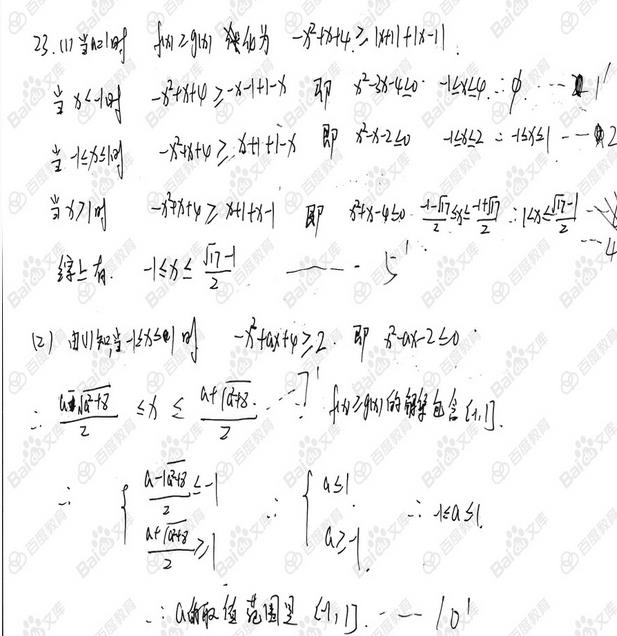 23. (1) 当a=1时 f(x)≥g(x) 转化为 -x²+x+4≥|x+1|+|x-1|
当 x<-1时 -x²+x+4≥-x-1+1-x 即 x²-3x-4≤0 -1≤x≤4 ∴ϕ ---- 1'
当 -1≤x≤1时 -x²+x+4≥x+1+1-x 即 x²-x-2≤0 -1≤x≤2 ∴ -1≤x≤1 --- 2
当 x>1时 -x²+x+4≥x+1+x-1 即 x²+x-4≤0 (-1-√17)/2≤x≤(-1+√17)/2 ∴1<x≤(√17-1)/2
--- 4
综上有 -1≤x≤(√17-1)/2 ---- 5'
(2) 由(1)知,当-1≤x≤1时 -x²+ax+4≥2 即 x²-ax-2≤0
∴ (a-√a²+8)/2 ≤x≤ (a+√a²+8)/2 --- 7' f(x)≥g(x)的解集包含[-1,1].
∴ { (a-√a²+8)/2 ≤-1 ∴ { a≤1
(a+√a²+8)/2 ≥1 a≥-1 ∴ -1≤a≤1.
∴ a的取值范围是 [-1,1]. ---- 10'
Bai 百度教育
Bai 文库